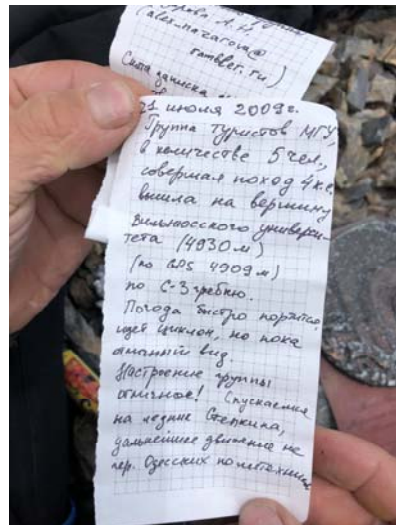 (alex-nazarova@
rambler.ru)
Снята записка
21 июля 2009г.
Группа туристов МГУ,
в количестве 5 чел.,
совершая поход 4 к.с.
вышла на вершину
Вильнюсского универси-
тета (4930 м)
(по GPS 4909 м)
по С-З гребню.
Погода быстро портится,
идет циклон, но пока
отличный вид.
Настроение группы
отличное! Спускаемся
на ледник Стёпкина,
дальнейшее движение на
пер. Одесских политехников